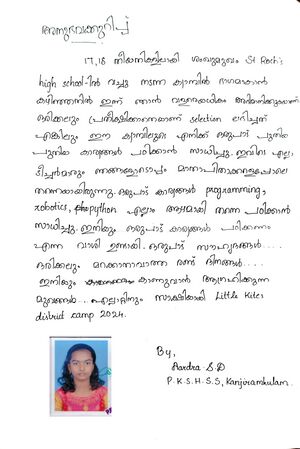 അനുഭവക്കുറിപ്പ്
17,18 തീയതികളിലായി ശംഖുമുഖം St Roch's
high school-ൽ വച്ചു നടന്ന ക്യാമ്പിൽ ഭാഗമാകാൻ
കഴിഞ്ഞതിൽ ഇന്ന് ഞാൻ വളരെയധികം അഭിമാനിക്കുന്നു
ഒരിക്കലും പ്രതീക്ഷിക്കാതെയാണ് selection ലഭിച്ചത്
എങ്കിലും ഈ ക്യാമ്പിലൂടെ എനിക്ക് ഒരുപാട് പുതിയ
പുതിയ കാര്യങ്ങൾ പഠിക്കാൻ സാധിച്ചു. ഇവിടെ എല്ലാ
ടീച്ചർമാരും ഞങ്ങളോടൊപ്പം മാതാപിതാക്കളെപ്പോലെ
തന്നെയായിരുന്നു. ഒരുപാട് കാര്യങ്ങൾ programming,
robotics, python എല്ലാം ആദ്യമായി തന്നെ പഠിക്കാൻ
സാധിച്ചു. ഇനിയും ഒരുപാട് കാര്യങ്ങൾ പഠിക്കണം
എന്ന വാശി ഉണ്ടായി. ഒരുപാട് സൗഹൃദങ്ങൾ....
ഒരിക്കലും മറക്കാനാവാത്ത രണ്ട് ദിനങ്ങൾ....
ഇനിയും കാണുവാൻ ആഗ്രഹിക്കുന്ന
മുഖങ്ങൾ... എല്ലാറ്റിനും സാക്ഷിയായി Little Kites
district camp 2024.
By,
Aardra S.D
P.K.S.H.S.S, Kanjiramkulam.